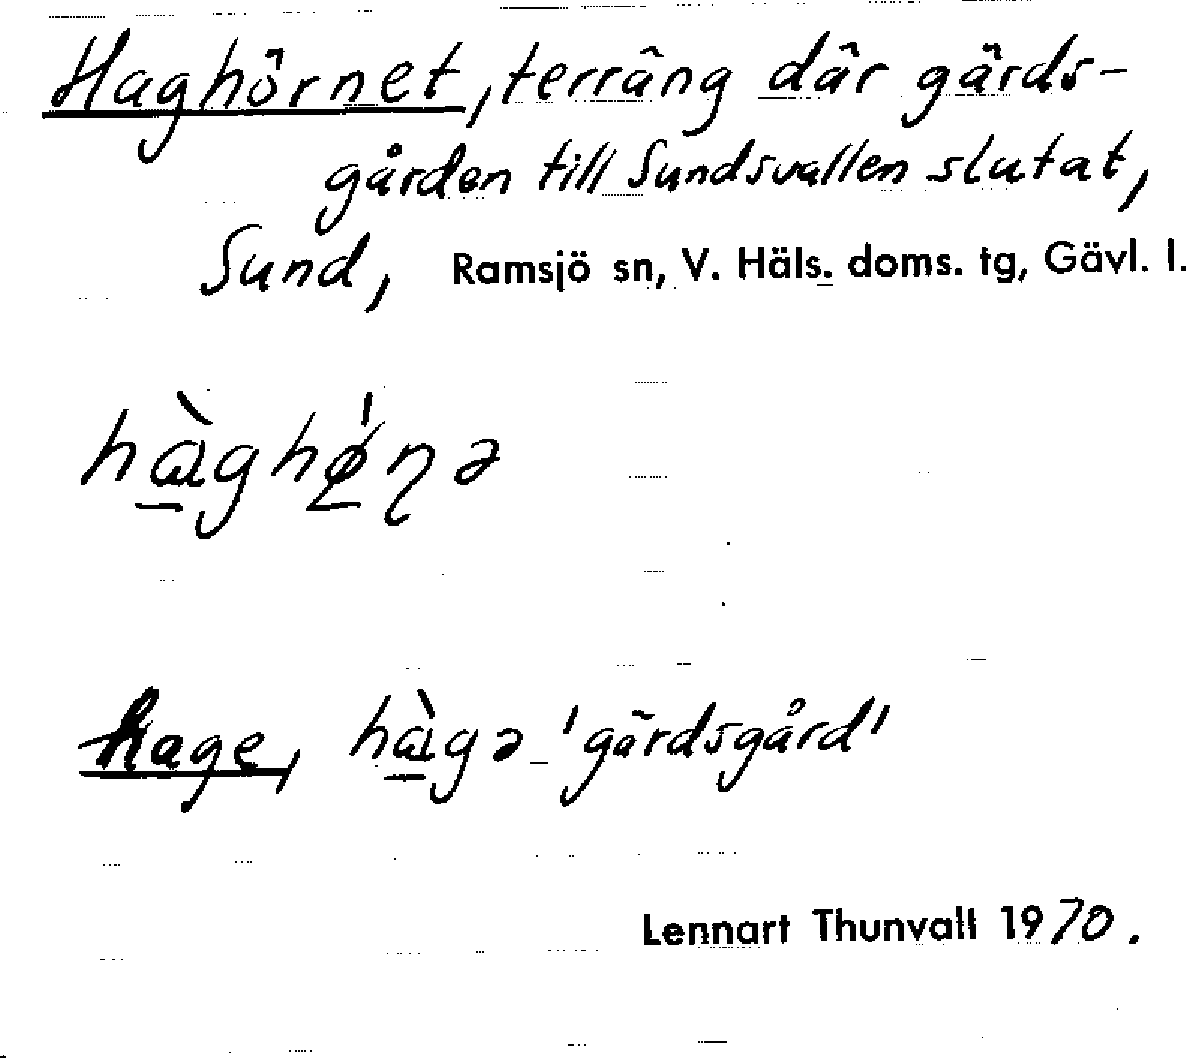 Haghörnet, terräng där gärds-
gården till Sundsvallen slutat,
Sund, Ramsjö sn, V. Häls. doms. tg, Gävl. l.
hɑ̱̀ghǿ̱ɳə
hage, hɑ̱̀gə 'gärdsgård'
Lennart Thunvall 1970.